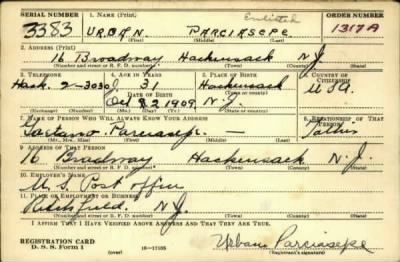 SERIAL NUMBER 1. Name (Print) Enlisted ORDER NUMBER
3383 URBAN PARCIASEPE 1317A
(First) (Middle) (Last)
2. Address (Print)
16 Broadway Hackensack N.J.
(Number and street or R. F. D. number) (Town) (County) (State)
3. Telephone 4. Age in Years 5. Place of Birth 6. Country of Citizenship
Hack. 2-3030 J. 31 Hackensack
Date of Birth U.S.A.
Oct 22 1909 N.J.
(Exchange) (Number) (Mo.) (Day) (Yr.) (State or country)
7. Name of Person Who Will Always Know Your Address 8. Relationship of That Person
Parciasepe - Father
(Mr., Mrs., Miss) (First) (Middle) (Last)
9. Address of That Person
16 Broadway Hackensack N.J.
(Number and street or R. F. D. number) (Town) (County) (State)
10. Employer's Name
U.S. Post Office
11. Place of Employment or Business
Ridgefield N.J.
(Number and street or R. F. D. number) (Town) (County) (State)
I Affirm That I Have Verified Above Answers and That They Are True.
REGISTRATION CARD
D. S. S. Form 1 16-17105 Urban Parciasepe
(over) (Registrant's signature)